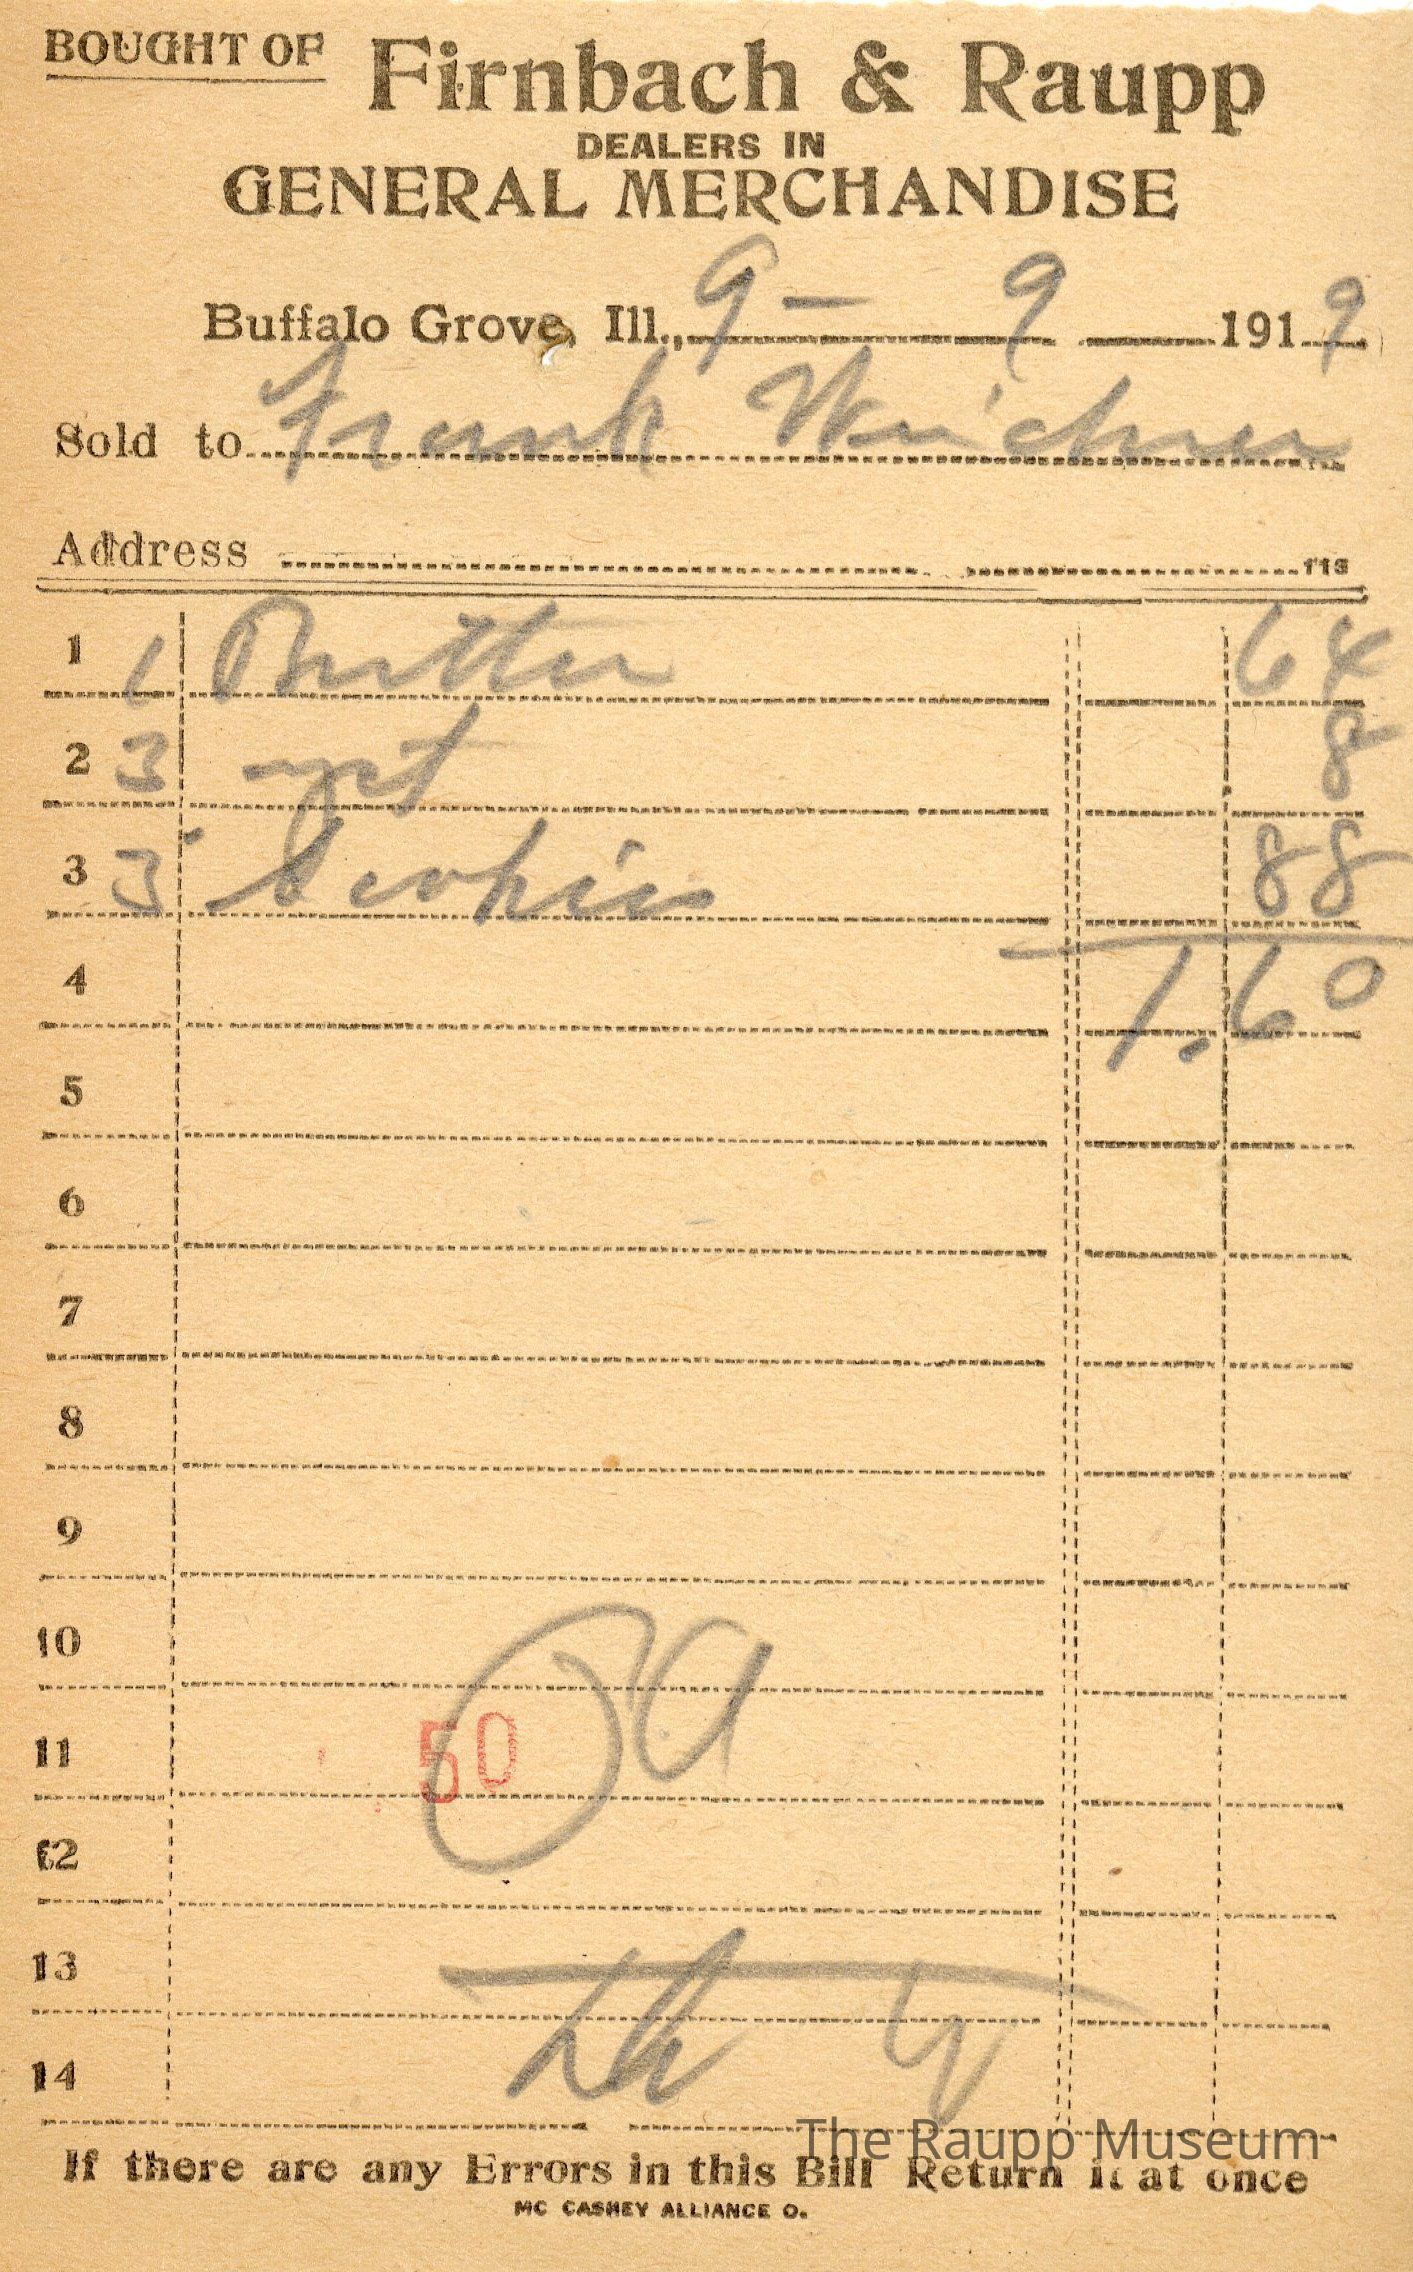 BOUGHT OF Firnbach & Raupp
DEALERS IN
GENERAL MERCHANDISE
Buffalo Grove, Ill., 9 - 9 1919
Sold to Frank
Address 113
1 1 Butter 64
2 3 yst 8
3 3 88
4 1.60
5
6
7
8
9
10
11 50
12
13
14
The Raupp Museum
If there are any Errors in this Bill Return it at once
MC CASKEY ALLIANCE O.